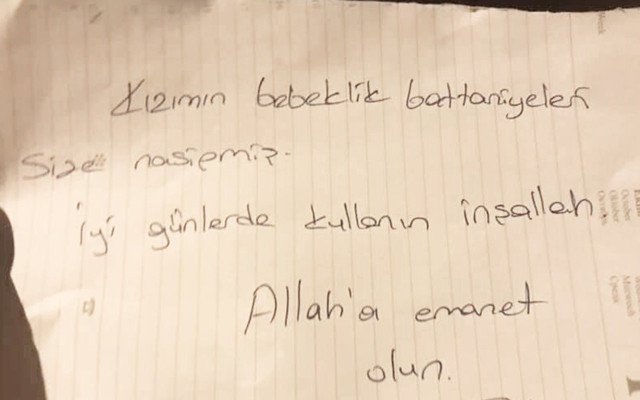 Kızımın bebeklik battaniyeleri
Size nasipmiş.
İyi günlerde kullanın inşallah.
Allah'a emanet
olun.